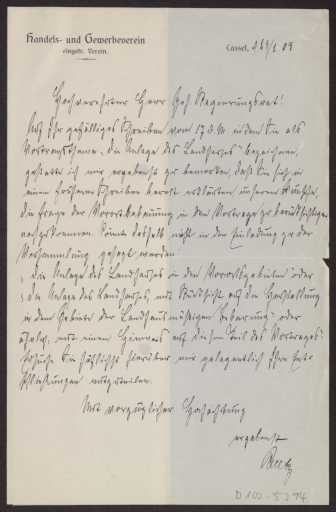 Handels- und Gewerbeverein
eingetr. Verein.
Cassel, 26/1.09
Hochverehrter Herr Geh. Regierungsrat!
Auf Ihr gefälliges Schreiben vom 17. d. M. in dem Sie als
Vortragsthema: "Die Anlage des Landhauses" bezeichnen,
gestatte ich mir ergebenst zu bemerken, daß Sie sich in
einem früheren Schreiben bereit erklärten unserem Wunsche,
die Frage der Vorortbebauung in dem Vortrage zu berücksichtigen
nachzukommen. Könnte deshalb nicht in der Einladung zu der
Versammlung gesagt werden:
"Die Anlage des Landhauses in den Vorortgebieten" oder
"Die Anlage des Landhauses, mit Rücksicht auf die Herstellung
in dem Gebiete der landhausmäßigen Bebauung" oder
mit einem Hinweis auf diesen Teil des Vortrages.
Bitte Sie höflichst hierüber mir gelegentlich Ihre Ent-
schließungen mitzuteilen.
Mit vorzüglicher Hochachtung
ergebenst
D 102-5294